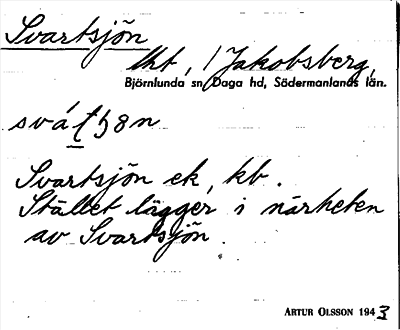 Svartsjön
lht, / Jakobsberg,
Björnlunda sn, Daga hd, Södermanlands län.
Svartsjön ek, kb.
Stället lägger i närheten
av Svartsjön.
ARTUR OLSSON 1943